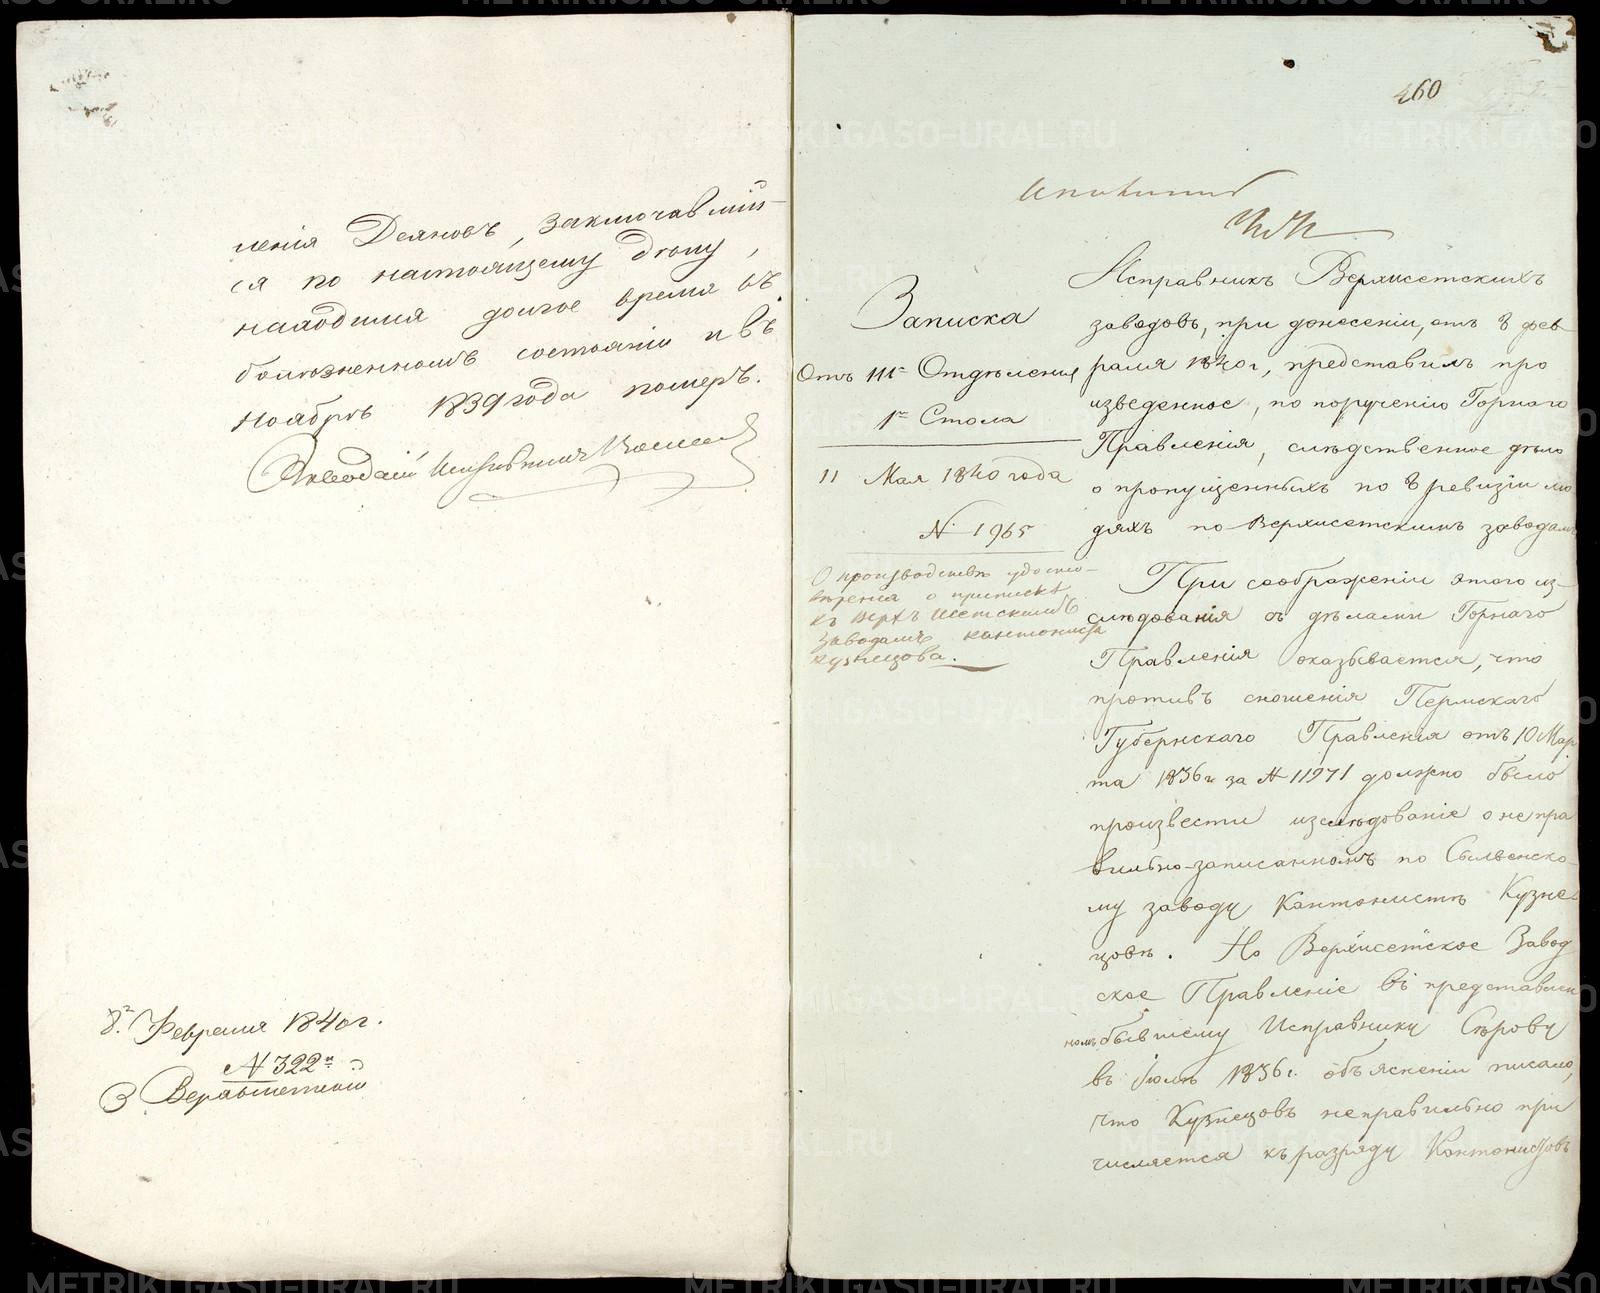 ленія Деяновъ, заключавшій-
ся по настоящему дѣлу,
находился долгое время въ
болѣзненномъ состояніи и въ
ноябрѣ 1839 года померъ.
8. Февраля 1840 г.
№ 322
В. Верхисетскій
460
Записка
Отъ III Отдѣленія
1 Стола
11 Мая 1840 года
№ 1965
О производствѣ удосто-
вѣренія о припискѣ
къ Верхъ Исетскимъ
заводамъ кантониста
Кузнецова.
Исправникъ Верхисетскихъ
заводовъ, при донесеніи, отъ 8 фев-
раля 1840 г, представилъ про
изведенное, по порученію Горнаго
Правленія, слѣдственное дѣло
о пропущенныхъ по 8 ревизіи лю
дяхъ по Верхисетскимъ заводамъ
При соображеніи этого из-
слѣдованія съ дѣлами Горнаго
Правленія оказывается, что
противъ сношенія Пермскаго
Губернскаго Правленія отъ 10 Мар
та 1836 г за № 11971 должно было
произвести изслѣдованіе о непра
вильно-записанномъ по Сылвенско-
му заводу Кантонистѣ Кузне
цовѣ. Но Верхисетское Завод
ское Правленіе въ представлен
номъ бывшему Исправнику Сѣрову
въ Іюлѣ 1836 г. объясненіи писало,
что Кузнецовъ неправильно при
числяется къ разряду Кантонистовъ
METRIKI.GASO-URAL.RU